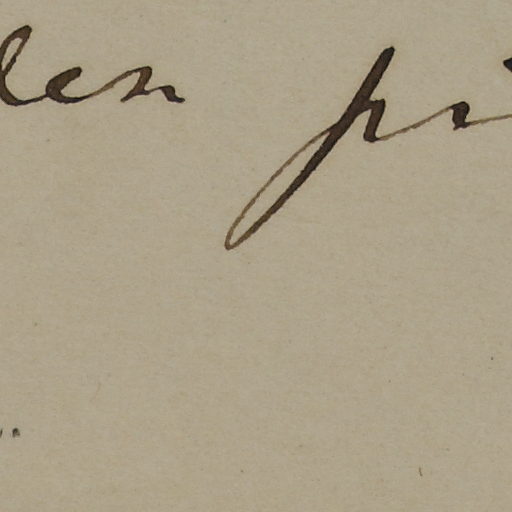 len pi